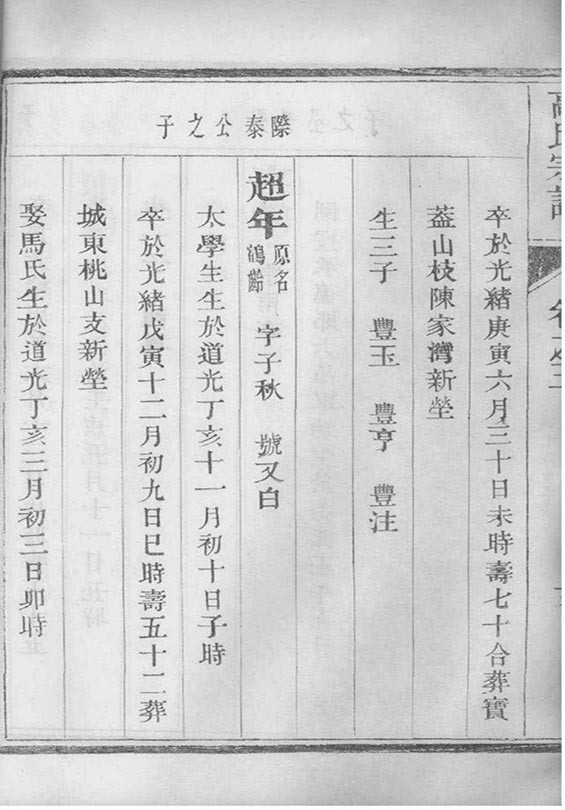 高氏宗譜
卷之三
卒於光緒庚寅六月三十日未時壽七十合葬寶
葢山枝陳家灣新塋
生三子 豐玉 豐亨 豐注
際泰公之子
超年 原名鶴齡 字子秋 號又白
太學生生於道光丁亥十一月初十日子時
卒於光緒戊寅十二月初九日巳時壽五十二葬
城東桃山支新塋
娶馬氏生於道光丁亥三月初三日卯時